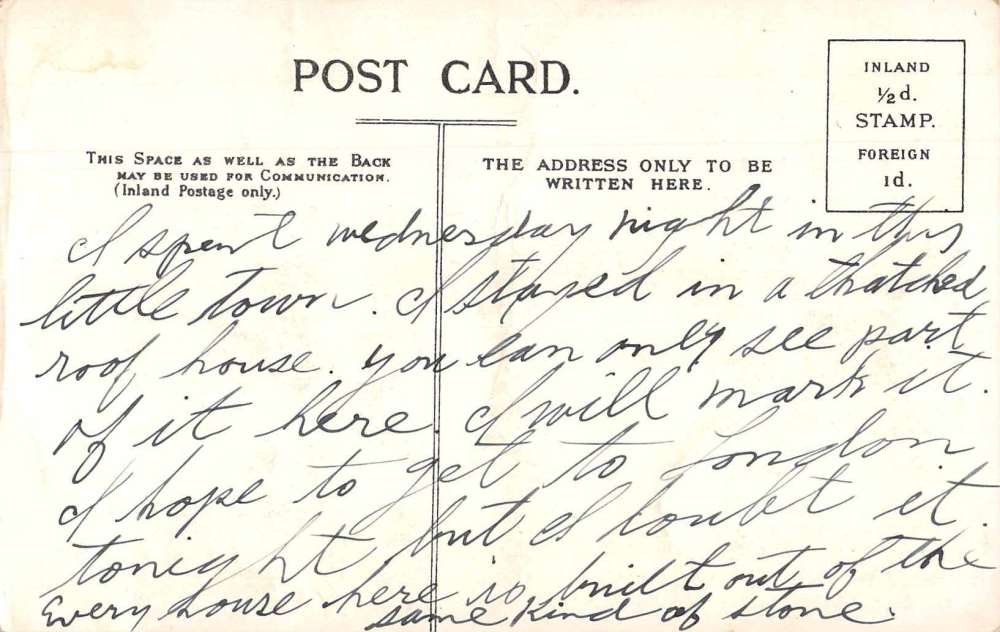 POST CARD.
INLAND
½d.
STAMP.
FOREIGN
1d.
THIS SPACE AS WELL AS THE BACK
MAY BE USED FOR COMMUNICATION.
(Inland Postage only.)
THE ADDRESS ONLY TO BE
WRITTEN HERE.
I spent wednesday night in this
little town. I stayed in a thatched
roof house. you can only see part
of it here. I will mark it.
I hope to get to London
tonight but I doubt it.
Every house here is built out of the
same kind of stone.